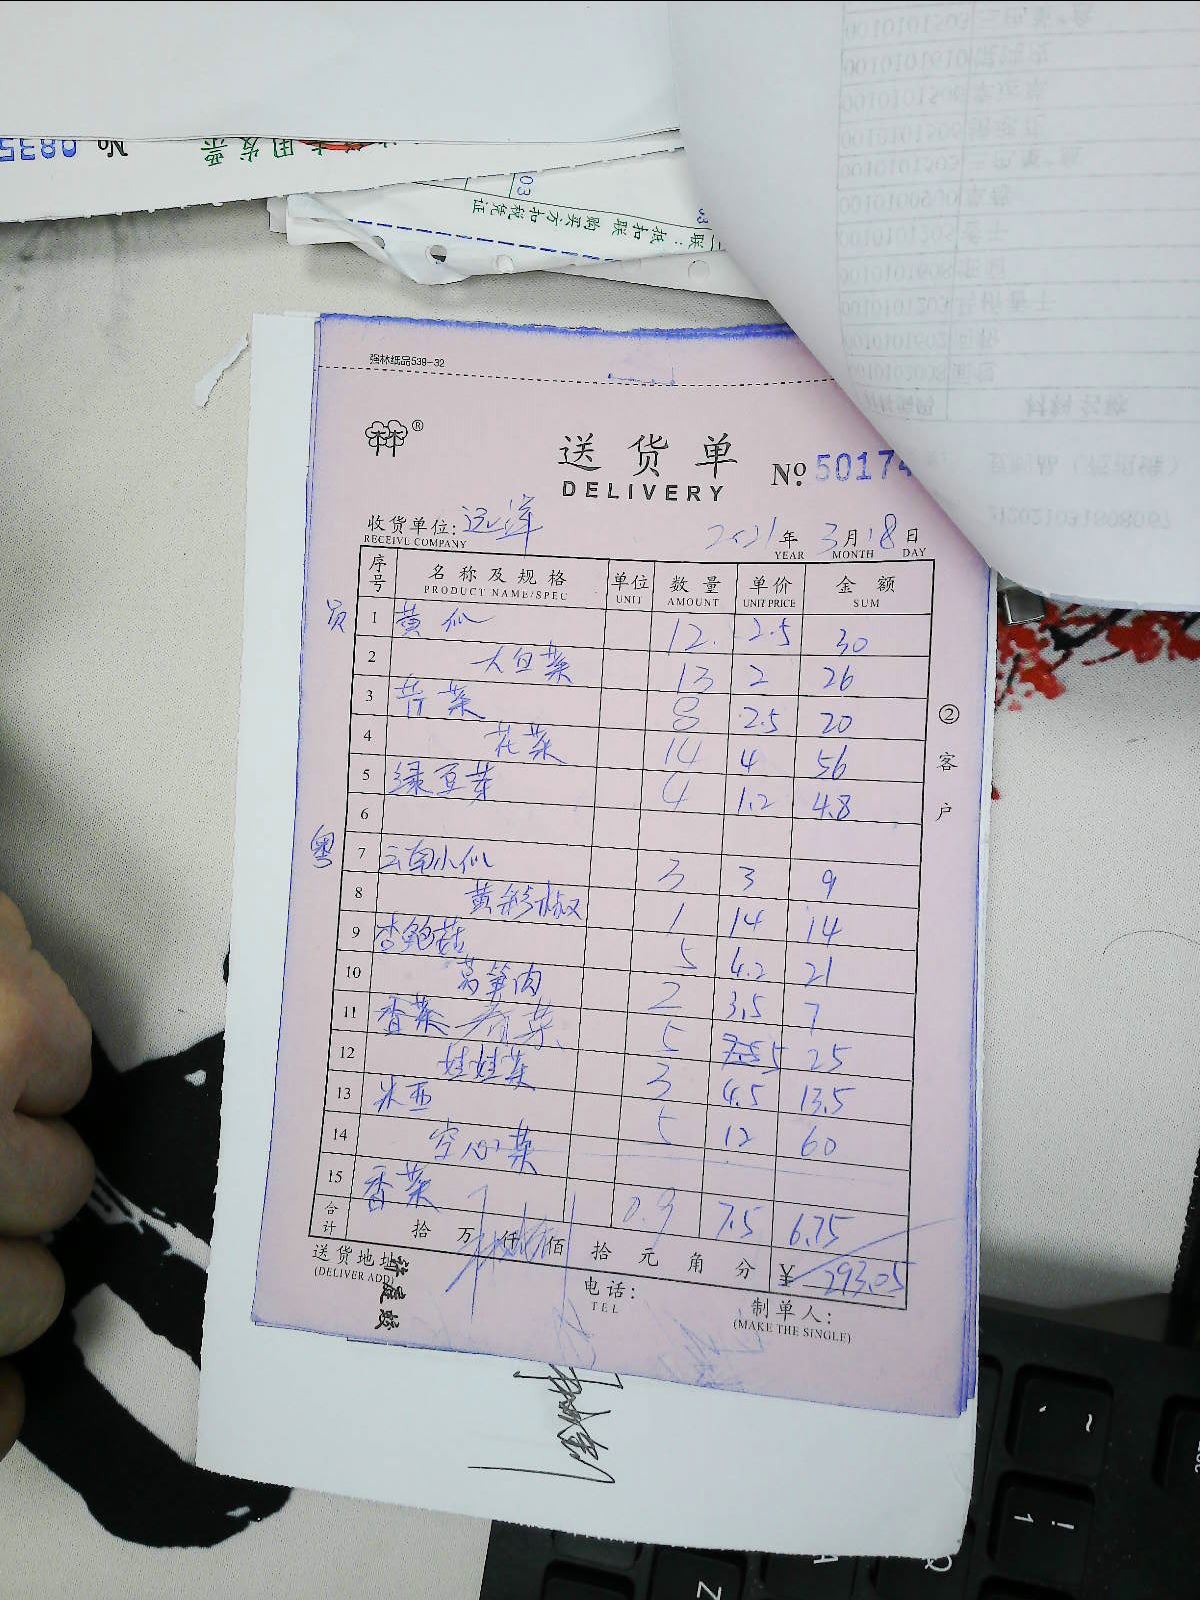 No 0835
专用发票
03
联：抵扣联 购买方扣税凭证
强林纸品538-32
送货单
DELIVERY
No. 50174
收货单位: 远洋
RECEIVE COMPANY
2021年 3月18日
YEAR MONTH DAY
序号 名称及规格 单位 数量 单价 金额
PRODUCT NAME/SPEC UNIT AMOUNT UNIT PRICE SUM
员 1 黄瓜 12. 2.5 30
2 大白菜 13 2 26
3 芹菜 8 2.5 20
4 花菜 14 4 56
5 绿豆芽 4 1.2 4.8
6
粤 7 云南小瓜 3 3 9
8 黄彩椒 1 14 14
9 杏鲍菇 5 4.2 21
10 莴笋肉 2 3.5 7
11 香菜 春菜 5 5 25
12 娃娃菜 3 4.5 13.5
13 米西 5 12 60
14 空心菜
15 香菜 0.9 7.5 6.75
合计 拾 万 仟 佰 拾 元 角 分 ¥ 293.05
送货地址
(DELIVER ADD)
电话:
TEL
制单人:
(MAKE THE SINGLE)
② 客户